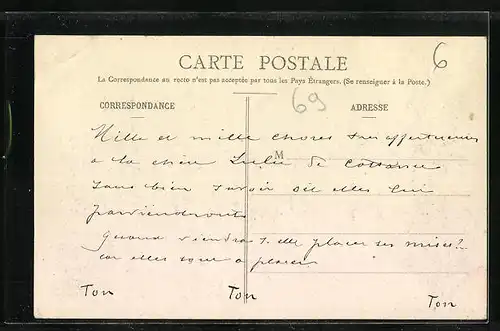 6
CARTE POSTALE
La Correspondance au recto n'est pas acceptée par tous les Pays Étrangers. (Se renseigner à la Poste.)
69
CORRESPONDANCE ADRESSE
Mille et mille choses très affectueuses
M
à la chère de
sans bien savoir où elles lui
parviendront
Quand viendra t. elle placer ses mises?
car elles sont à placer
Ton Ton Ton